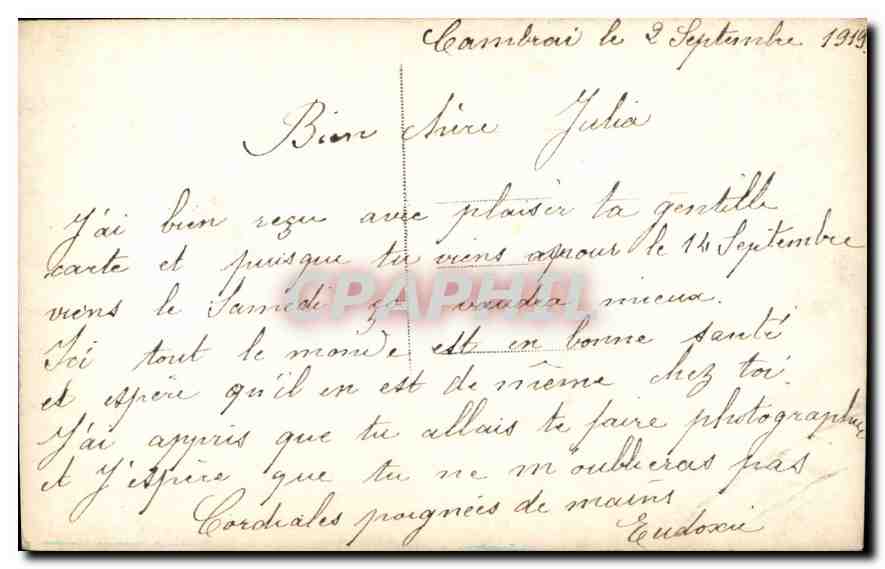 Cambrai le 2 Septembre 1919.
Bien chère Julia
J'ai bien reçu avec plaisir ta gentille
carte et puisque tu viens pour le 14 Septembre
viens le Samedi ça vaudra mieux.
Ici tout le monde est en bonne santé
et espère qu'il en est de même chez toi.
J'ai appris que tu allais te faire photographier
et J'espère que tu ne m'oublieras pas
Cordiales poignées de mains
Eudoxie
CPAPHIL